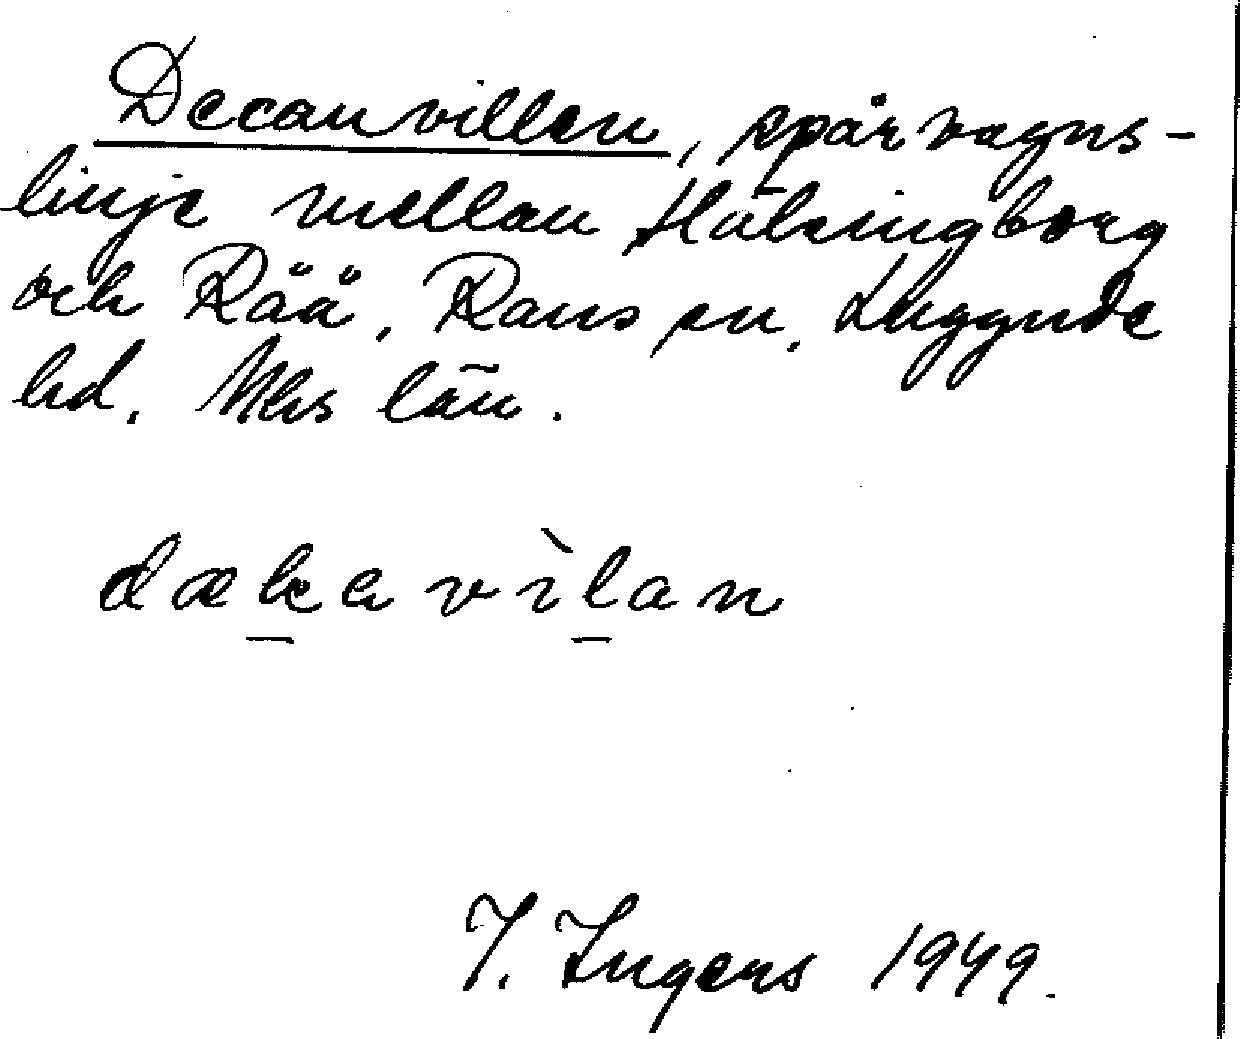 Decauvillen, spårvagns-
linje mellan Hälsingborg
och Råå, Raus sn, Luggude
hd. Mhs län.
dækavìlan
I. Ingers 1949.